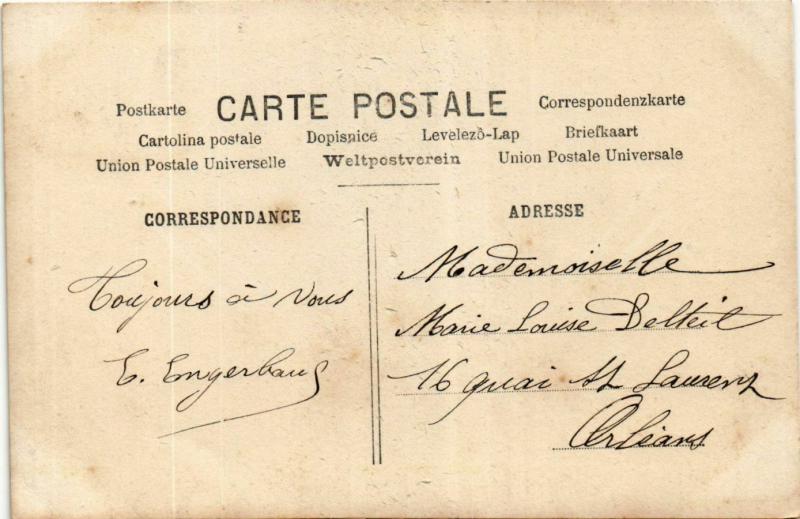 Postkarte CARTE POSTALE Correspondenzkarte
Cartolina postale Dopisnice Levelezô-Lap Briefkaart
Union Postale Universelle Weltpostverein Union Postale Universale
CORRESPONDANCE
Toujours à vous
E. Engerbaud
ADRESSE
Mademoiselle
Marie Louise Delteil
16 quai St Laurent
Orléans